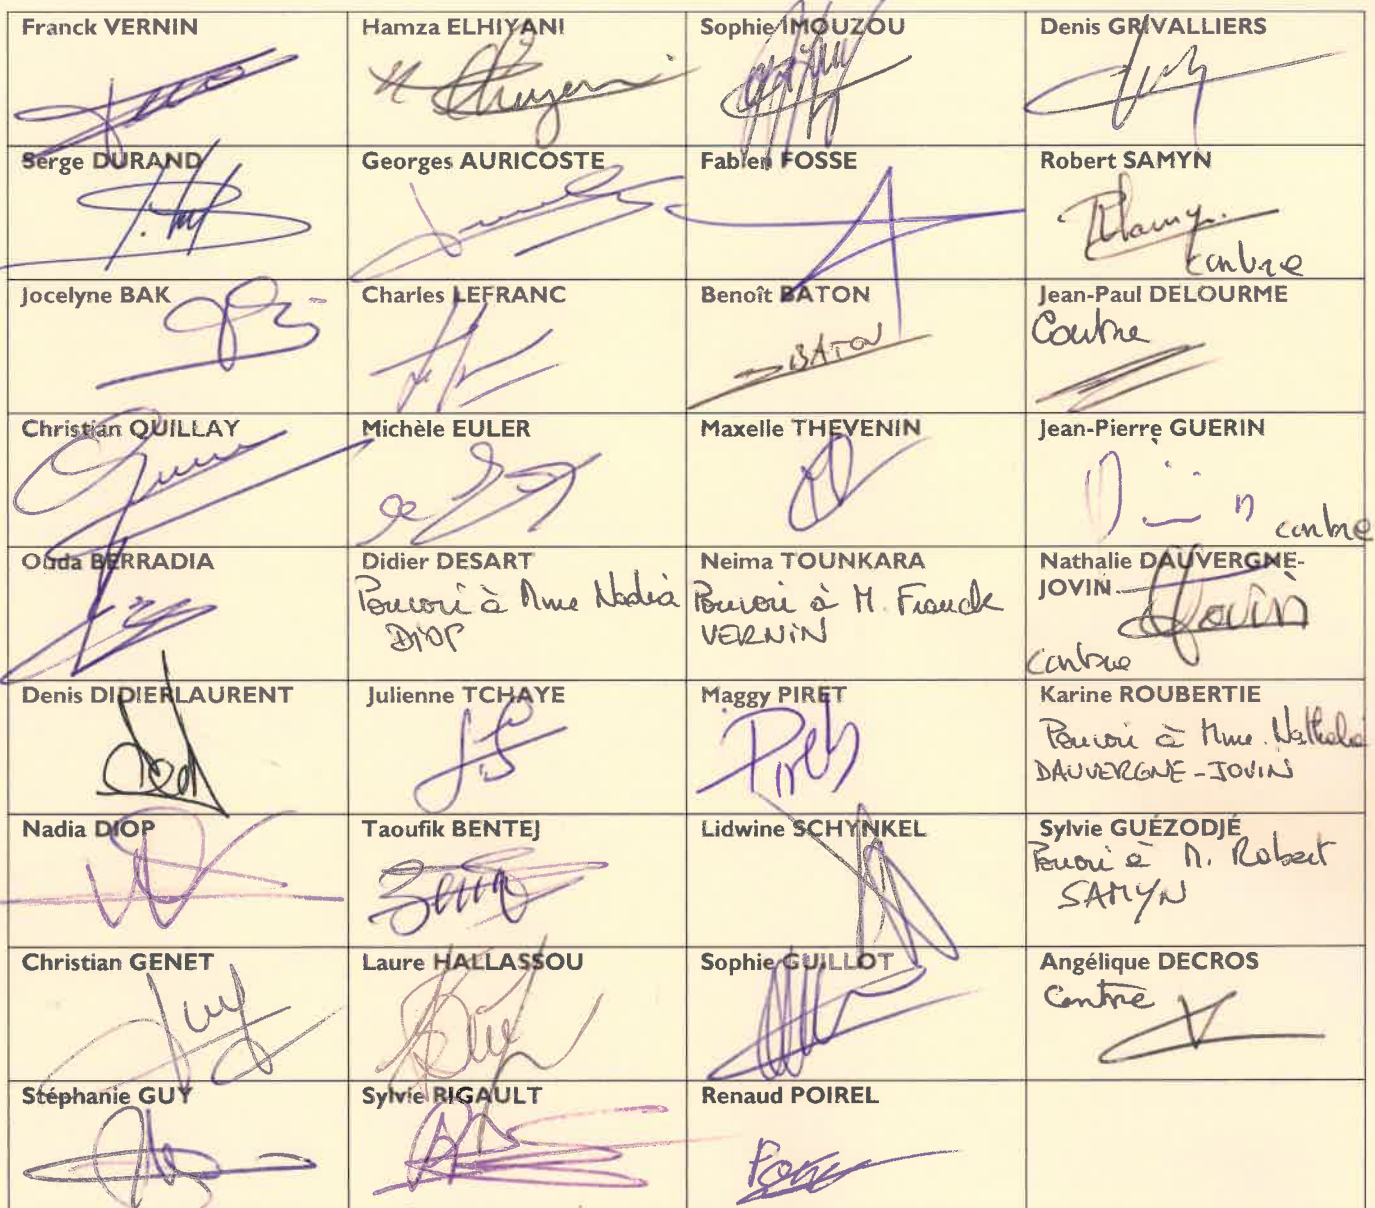 Franck VERNIN
Hamza ELHIYANI
Sophie IMOUZOU
Denis GRIVALLIERS
Serge DURAND
Georges AURICOSTE
Fabien FOSSE
Robert SAMYN
contre
Jocelyne BAK
Charles LEFRANC
Benoît BATON
BATON
Jean-Paul DELOURME
Contre
Christian QUILLAY
Michèle EULER
Maxelle THEVENIN
Jean-Pierre GUERIN
contre
Ouda BERRADIA
Didier DESART
Pouvoir à Mme Nadia
DIOP
Neima TOUNKARA
Pouvoir à M. Franck
VERNIN
Nathalie DAUVERGNE-
JOVIN
Jovin
contre
Denis DIDIERLAURENT
Julienne TCHAYE
Maggy PIRET
Karine ROUBERTIE
Pouvoir à Mme. Nathalie
DAUVERGNE-JOVIN
Nadia DIOP
Taoufik BENTEJ
Lidwine SCHYNKEL
Sylvie GUÉZODJÉ
Pouvoir à M. Robert
SAMYN
Christian GENET
Laure HALLASSOU
Sophie GUILLOT
Angélique DECROS
Contre
Stéphanie GUY
Sylvie RIGAULT
Renaud POIREL